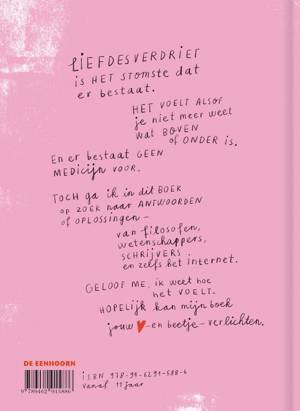 LIEFDESVERDRIET
is HET STOMSTE dat
er bestaat.
HET VOELT ALSOF
je niet meer weet
wat BOVEN
of ONDER is.
En er bestaat GEEN
MEDICIJN VOOR.
TOCH ga ik in dit BOEK
op ZOEK naar ANTWOORDEN
of OPLOSSINGEN –
van filosofen,
wetenschappers,
SCHRIJVERS
en zelfs het internet.
GELOOF ME, ik weet hoe
het VOELT.
HOPELIJK kan mijn boek
jouw ♥-en beetje-verlichten.
DE EENHOORN
9 789462 915886
ISBN 978-94-6291-588-6
Vanaf 11 jaar